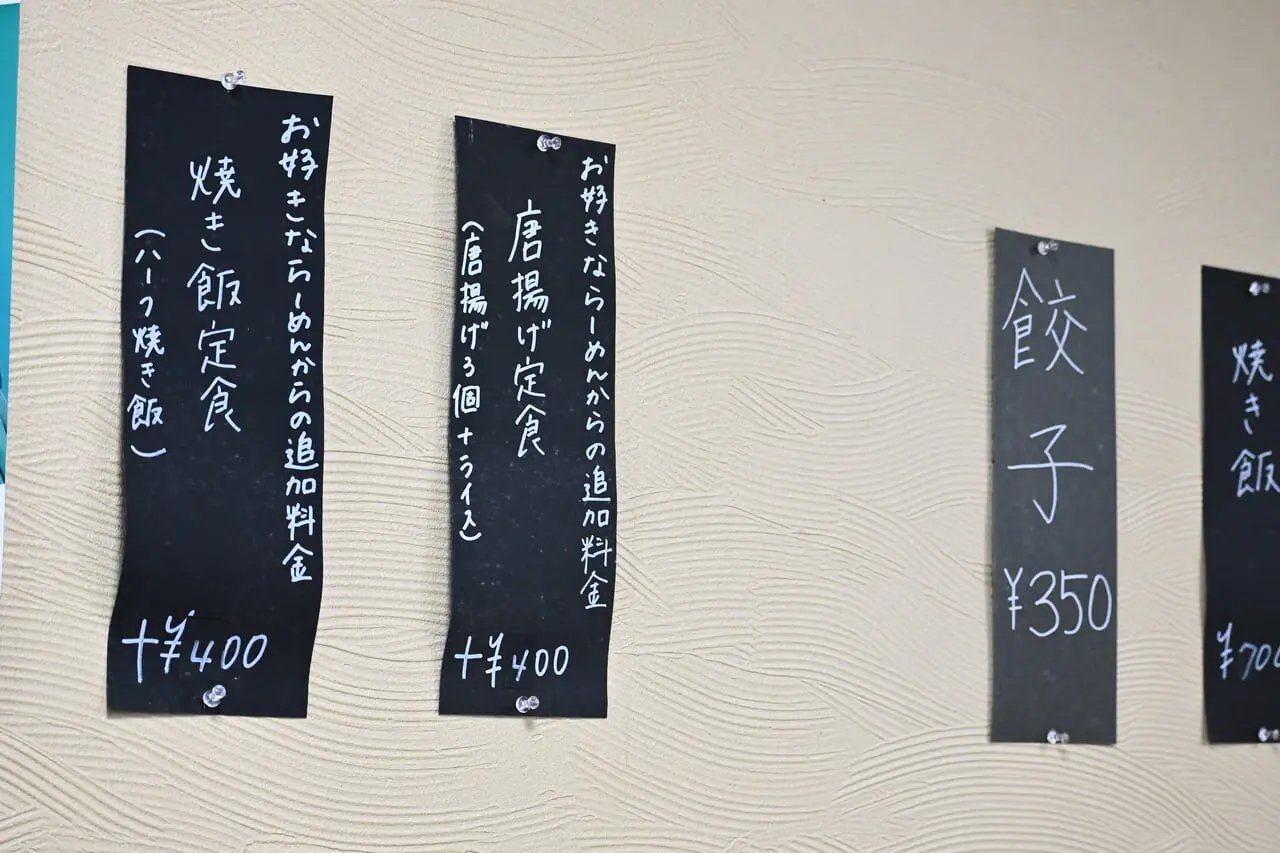 お好きならーめんからの追加料金
焼き飯定食
(ハーフ焼き飯)
+¥400
お好きならーめんからの追加料金
唐揚げ定食
(唐揚げ3個+ライス)
+¥400
餃子
¥350
焼き飯
¥700